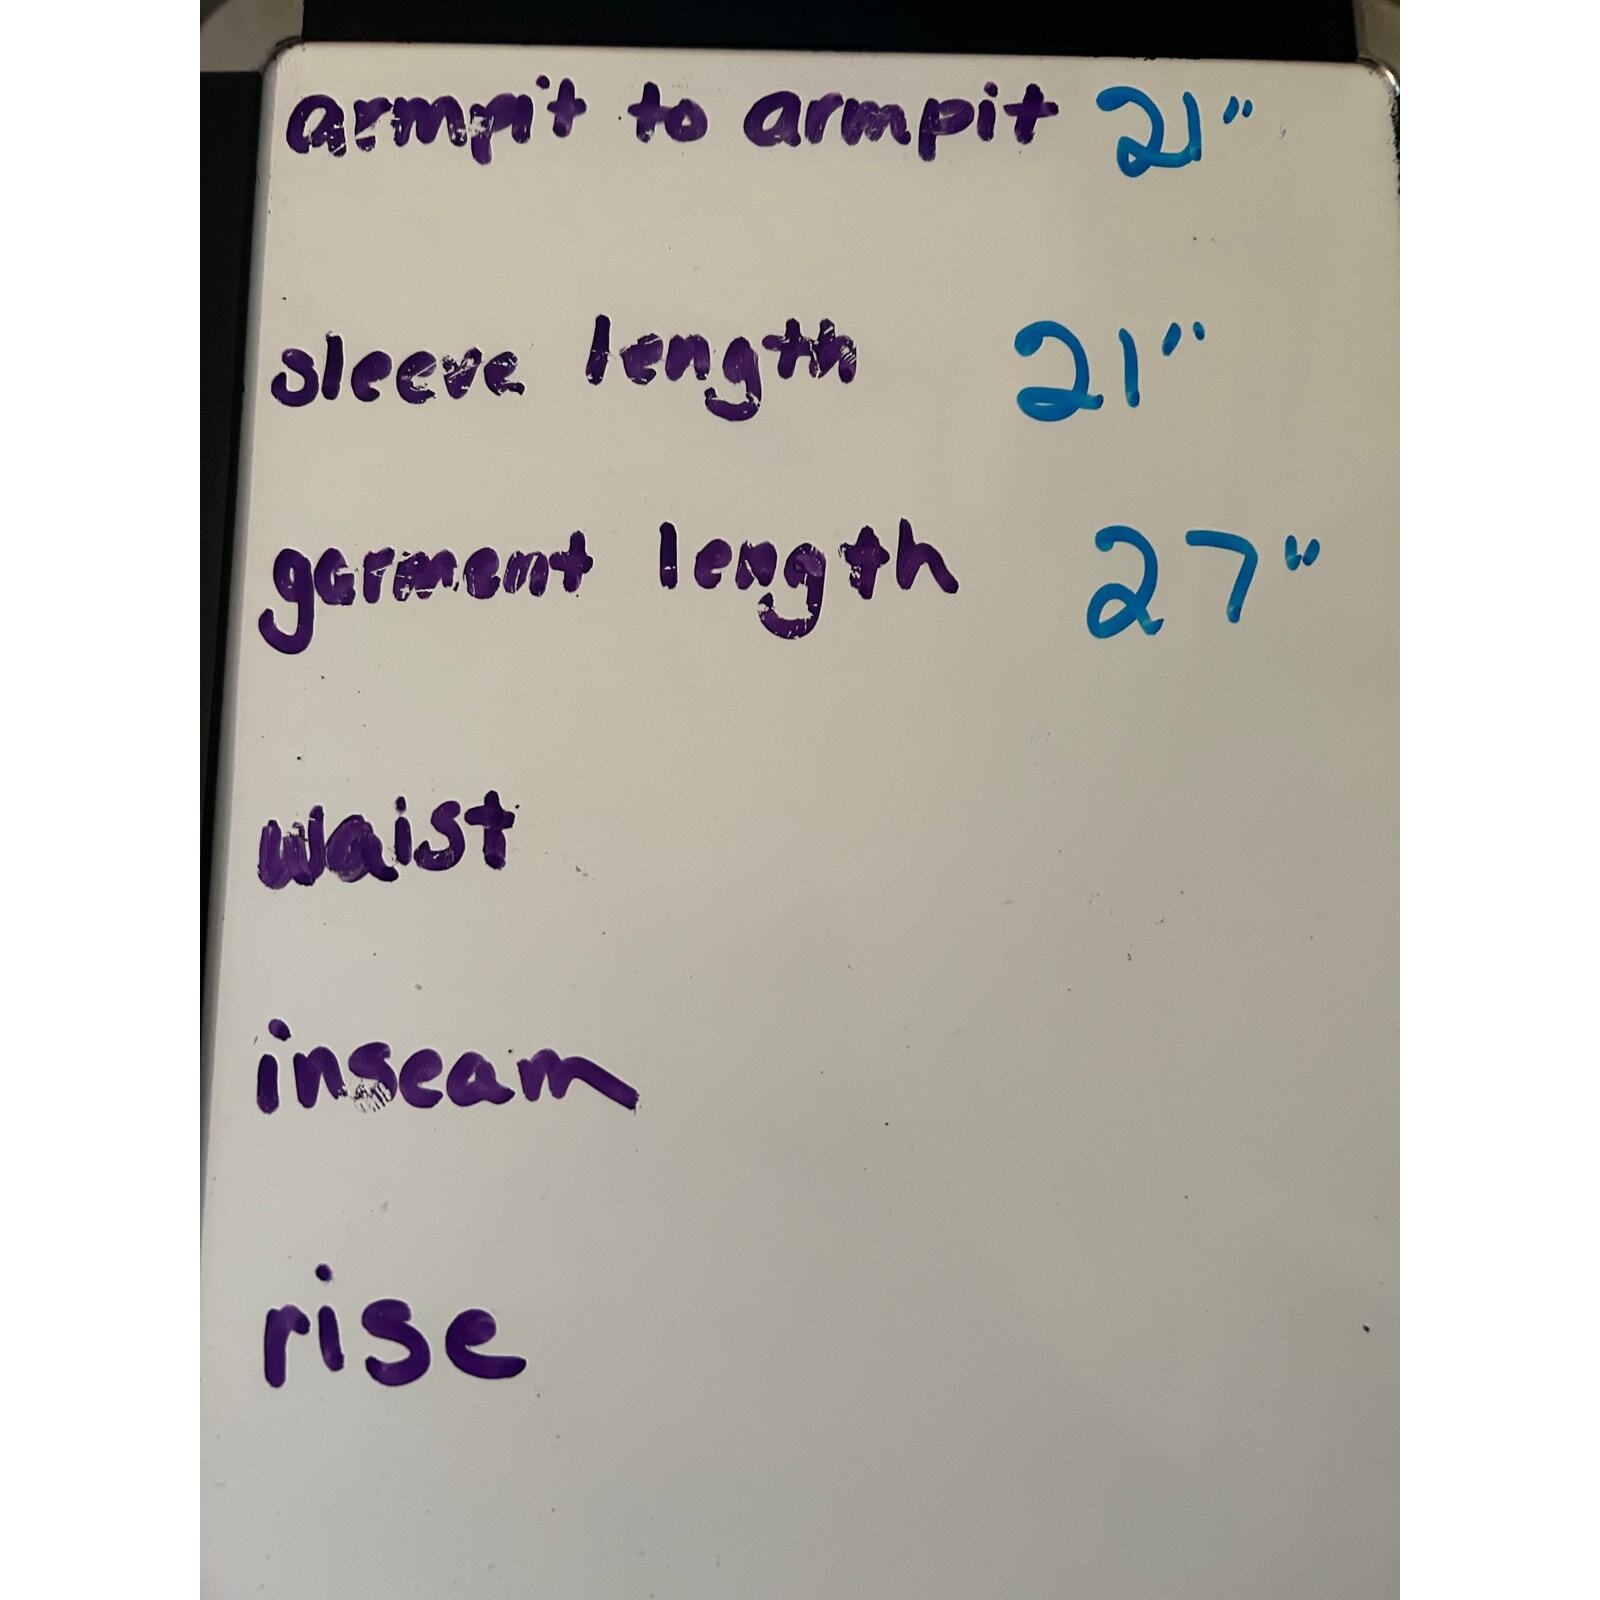 armpit to armpit 21"
sleeve length 21"
garment length 27"
waist
inseam
rise